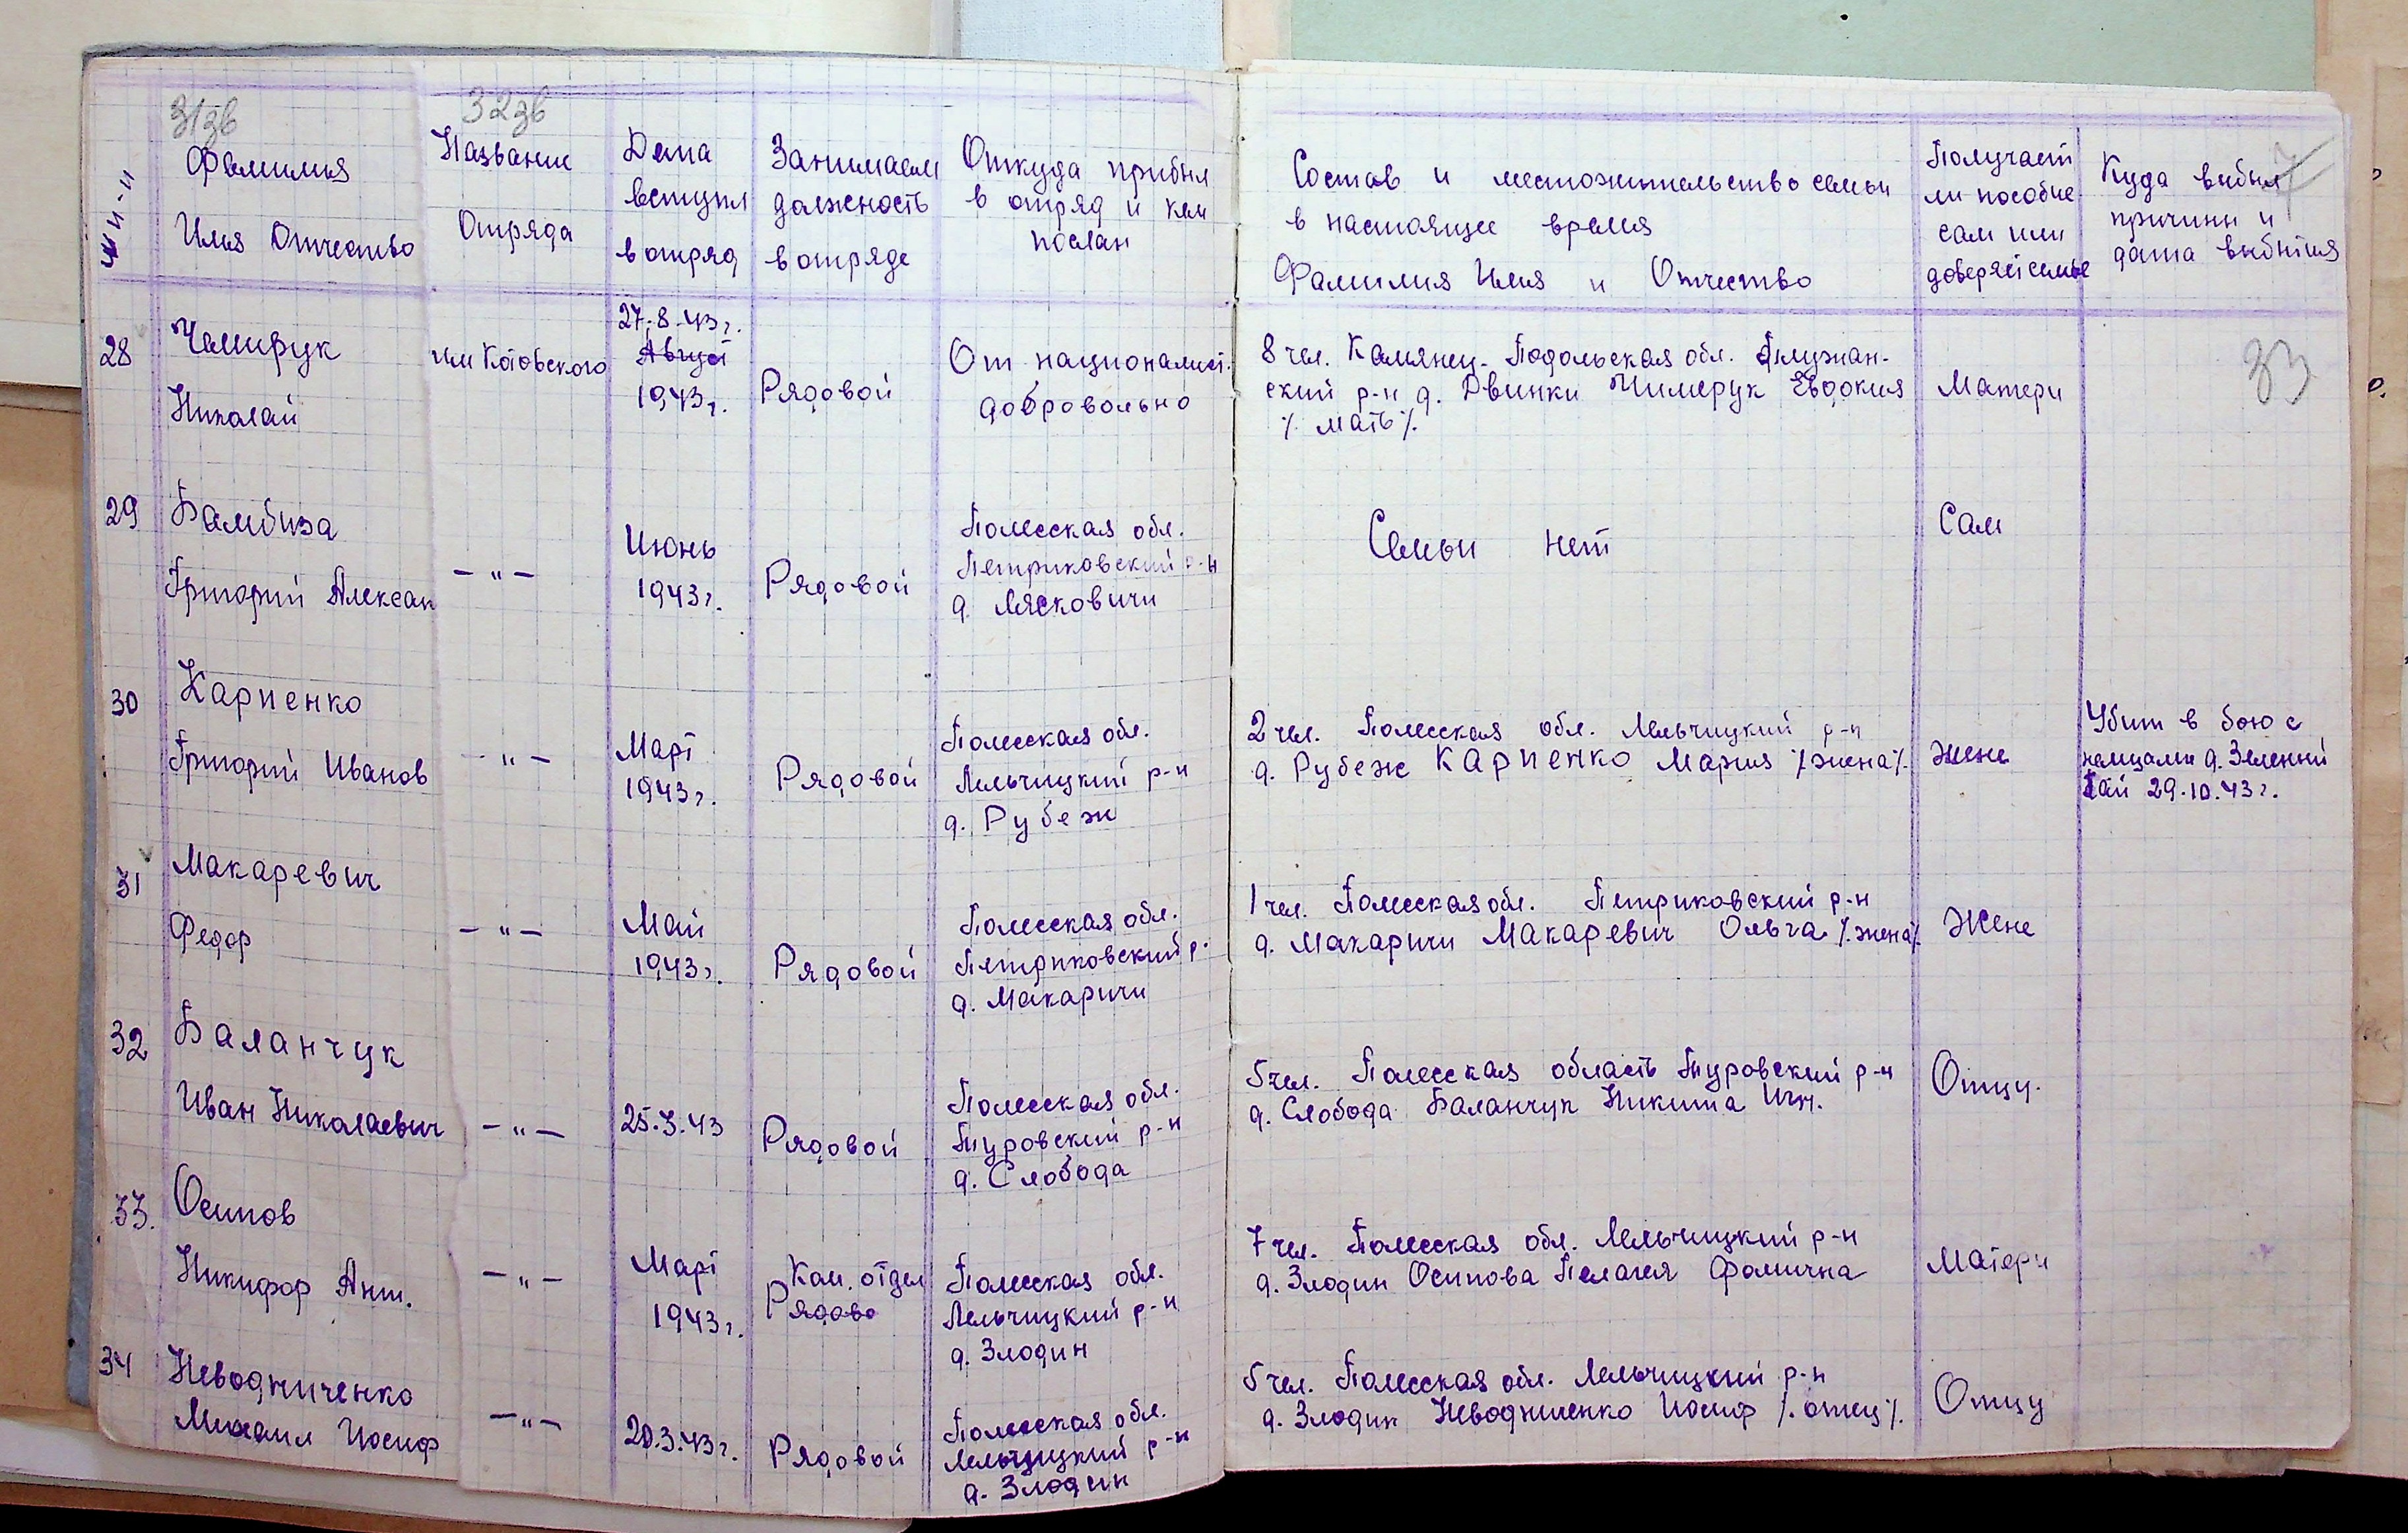 31зв
32зв
№ п-п
Фамилия
Имя Отчество
Название
Отряда
Дата
вступл
в отряд
Занимаем
должность
в отряде
Откуда прибыл
в отряд и кем
послан
Состав и местожительство семьи
в настоящее время
Фамилия Имя и Отчество
Получает
ли пособие
сам или
доверяет семье
Куда выбыл
причины и
дата выбытия
33
28
Чемирук
Николай
им Котовского
27.8.43г.
Август
1943г.
Рядовой
От националист.
добровольно
8 чел. Камянец-Подольская обл.
ский р-н д. Двинки Чимерук Евдокия
/. мать /.
Матери
29
Бамбиза
Григорий Алексан
— " —
Июнь
1943г.
Рядовой
Полесская обл.
Петриковский р-н
д. Лясковичи
Семьи нет
Сам
30
Карпенко
Григорий Иванов
— " —
Март
1943г.
Рядовой
Полесская обл.
Лельчицкий р-н
д. Рубеж
2 чел. Полесская обл. Лельчицкий р-н
д. Рубеж Карпенко Мария /. жена /.
жене
Убит в бою с
немцами д. Зеленый
Гай 29.10.43г.
31
Макаревич
Федор
— " —
Май
1943г.
Рядовой
Полесская обл.
Петриковский р-
д. Макаричи
1 чел. Полесская обл. Петриковский р-н
д. Макаричи Макаревич Ольга /. жена /.
Жене
32
Баланчук
Иван Николаевич
— " —
25.3.43
Рядовой
Полесская обл.
Туровский р-н
д. Слобода
5 чел. Полесская область Туровский р-н
д. Слобода Баланчук Никита Игн.
Отцу.
33.
Осипов
Никифор Ант.
— " —
Март
1943г.
Ком. отдел
Рядово
Полесская обл.
Лельчицкий р-н
д. Злодин
7 чел. Полесская обл. Лельчицкий р-н
д. Злодин Осипова Пелагея Фомична
Матери
34
Неводниченко
Михаил Иосиф
— " —
20.3.43г.
Рядовой
Полесская обл.
Лельчицкий р-н
д. Злодин
5 чел. Полесская обл. Лельчицкий р-н
д. Злодин Неводниченко Иосиф /. отец /.
Отцу